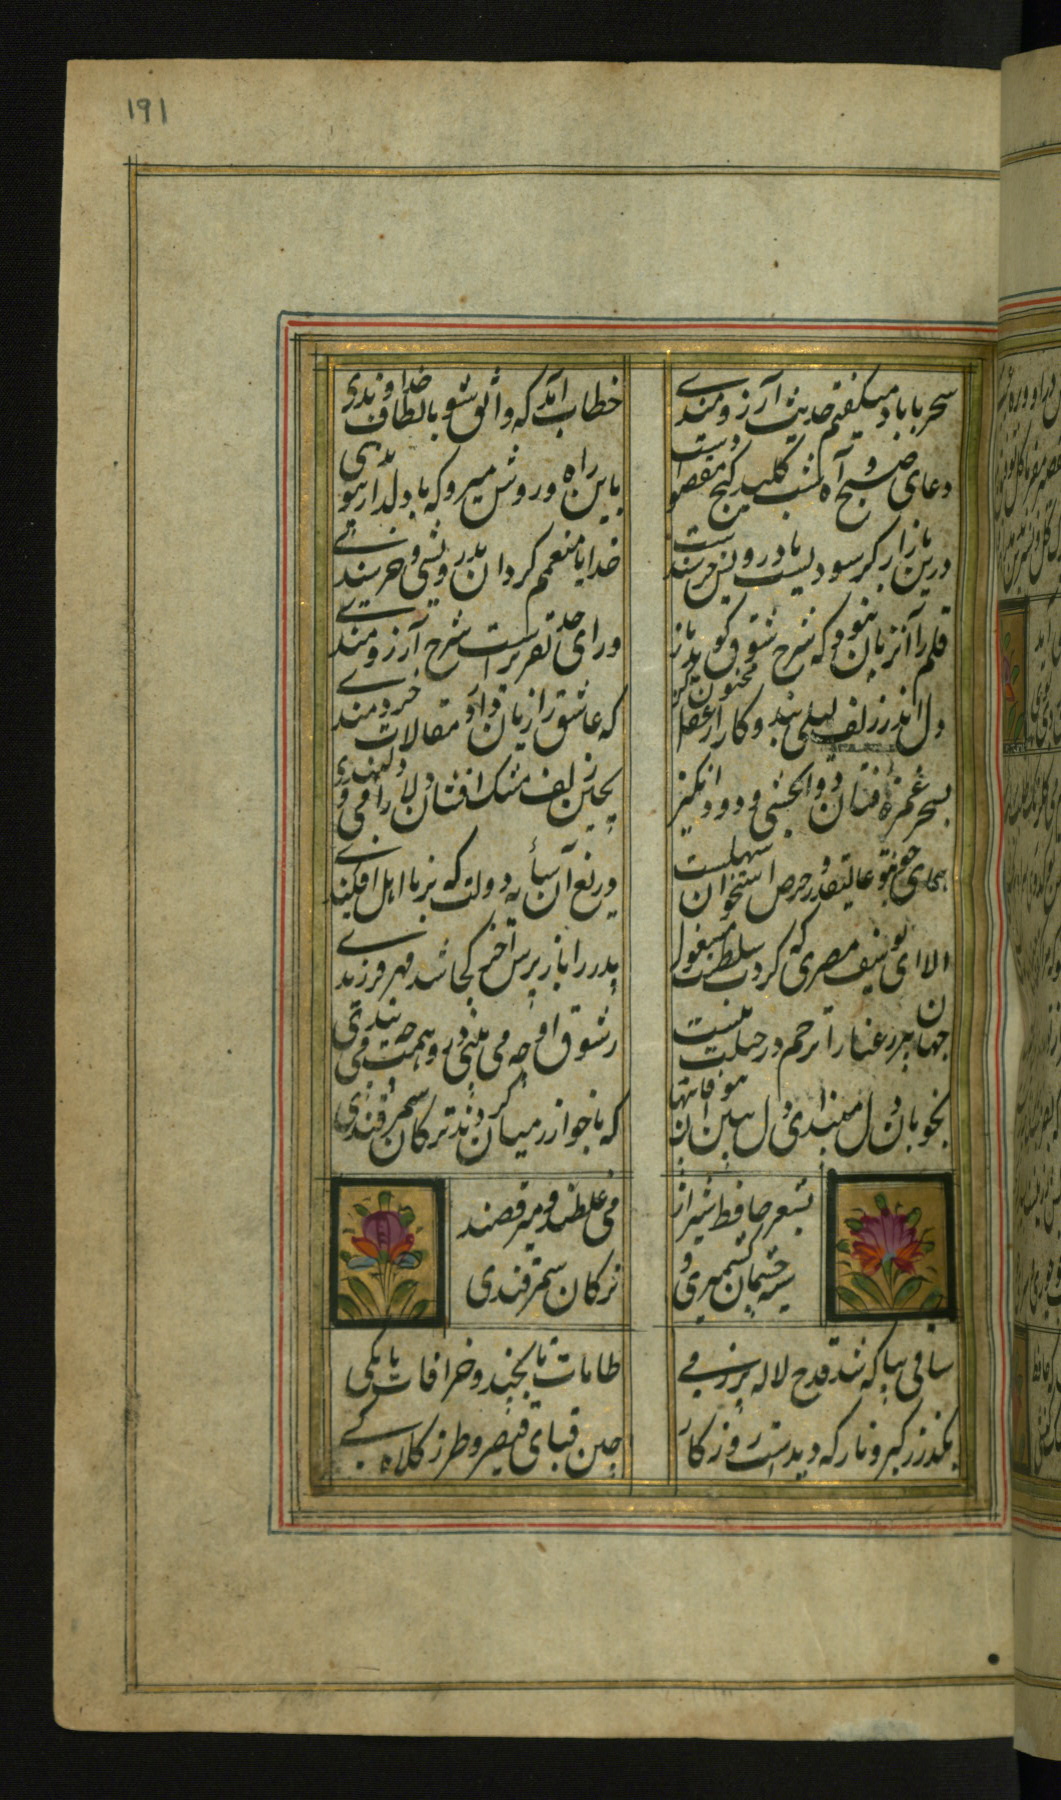 ۱۹۱
سحر با باد میگفتم حدیث آرزومندی
خطاب آمد که واثق شو بالطاف خداوندی
دعای صبح و آه شب کلید گنج مقصودست
باین راه و روش میرو که با دلدار پیوندی
درین بازار گر سودیست با درویش خرسندست
خدایا منعمم گردان بدرویشی و خرسندی
قلم را آن زبان نبود که شرح شوق گوید باز
ورای حد تقریرست شرح آرزومندی
دل اندر زلف لیلی بند و کار از عقل مجنون کن
که عاشق را زیان دارد مقالات خردمندی
بسحر غمزه فتان دوا بخشی و دردانگیز
بچین زلف مشک افشان دلارامی و دلبندی
همای چون تو عالیقدر و حرص استخوان سهلست
دریغ آن سایه دولت که بر نااهل افکندی
الا ای یوسف مصری که کردت سلطنت مشغول
پدر را باز پرس آخر کجا شد مهر فرزندی
جهان پیر رعنا را ترحم در جبلت نیست
ز شوق او چه می بینی درو همت چه می بندی
بخوبان دل مبند ای دل ببین آن بیوفاییها
که با خوارزمیان کردند ترکان سمرقندی
بشعر حافظ شیراز
می غلطند و میرقصند
سیه چشمان کشمیری و
ترکان سمرقندی
ساقی بیا که شد قدح لاله پر ز می
طامات تا بچند و خرافات تا بکی
بگذر ز کبر و ناز که دیدست روزگار
چین قبای قیصر و طرز کلاه کی